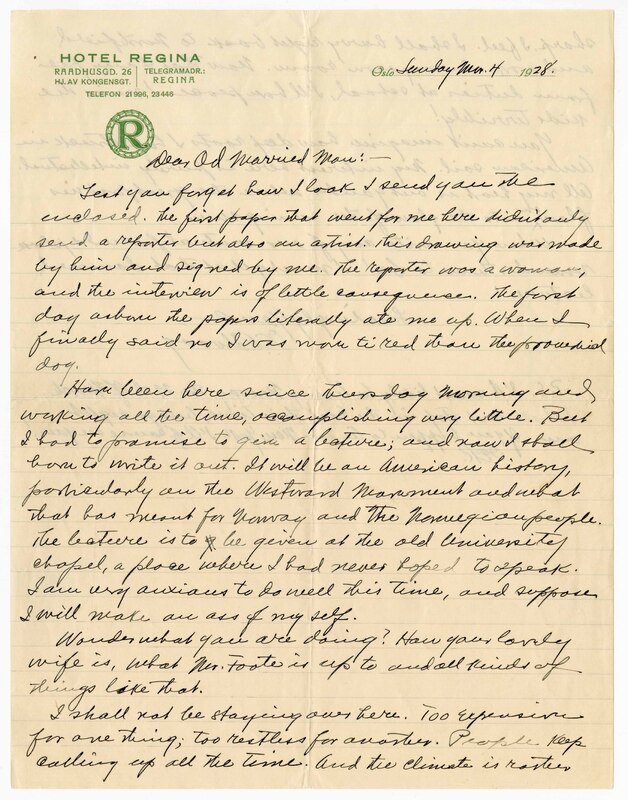 HOTEL REGINA
RAADHUSGD. 26
HJ. AV KONGENSGT.
TELEGRAMADR.:
REGINA
TELEFON 21996, 23446
Oslo Sunday Mar. 4 1928.
R
Dear Old Married Man:-
Lest you forget how I look I send you the
enclosed. The first paper that went for me here didnt only
send a reporter but also an artist. This drawing was made
by him and signed by me. The reporter was a woman,
and the interview is of little consequence. The first
day ashore the papers literally ate me up. When I
finally said no I was more tired than the proverbial
dog.
Have been here since Thursday morning and
working all the time, accomplishing very little. But
I had to promise to give a lecture; and now I shall
have to write it out. It will be on American history,
particularly on the Westward Movement and what
that has meant for Norway and the Norwegian people.
The lecture is to be given at the old University
chapel, a place where I had never hoped to speak.
I am very anxious to do well this time, and suppose
I will make an ass of my self.
Wonder what you are doing? How your lovely
wife is, what Mr. Foote is up to and all kinds of
things like that.
I shall not be staying over here. Too expensive
for one thing; too restless for another. People keep
calling up all the time. And the climate is rather